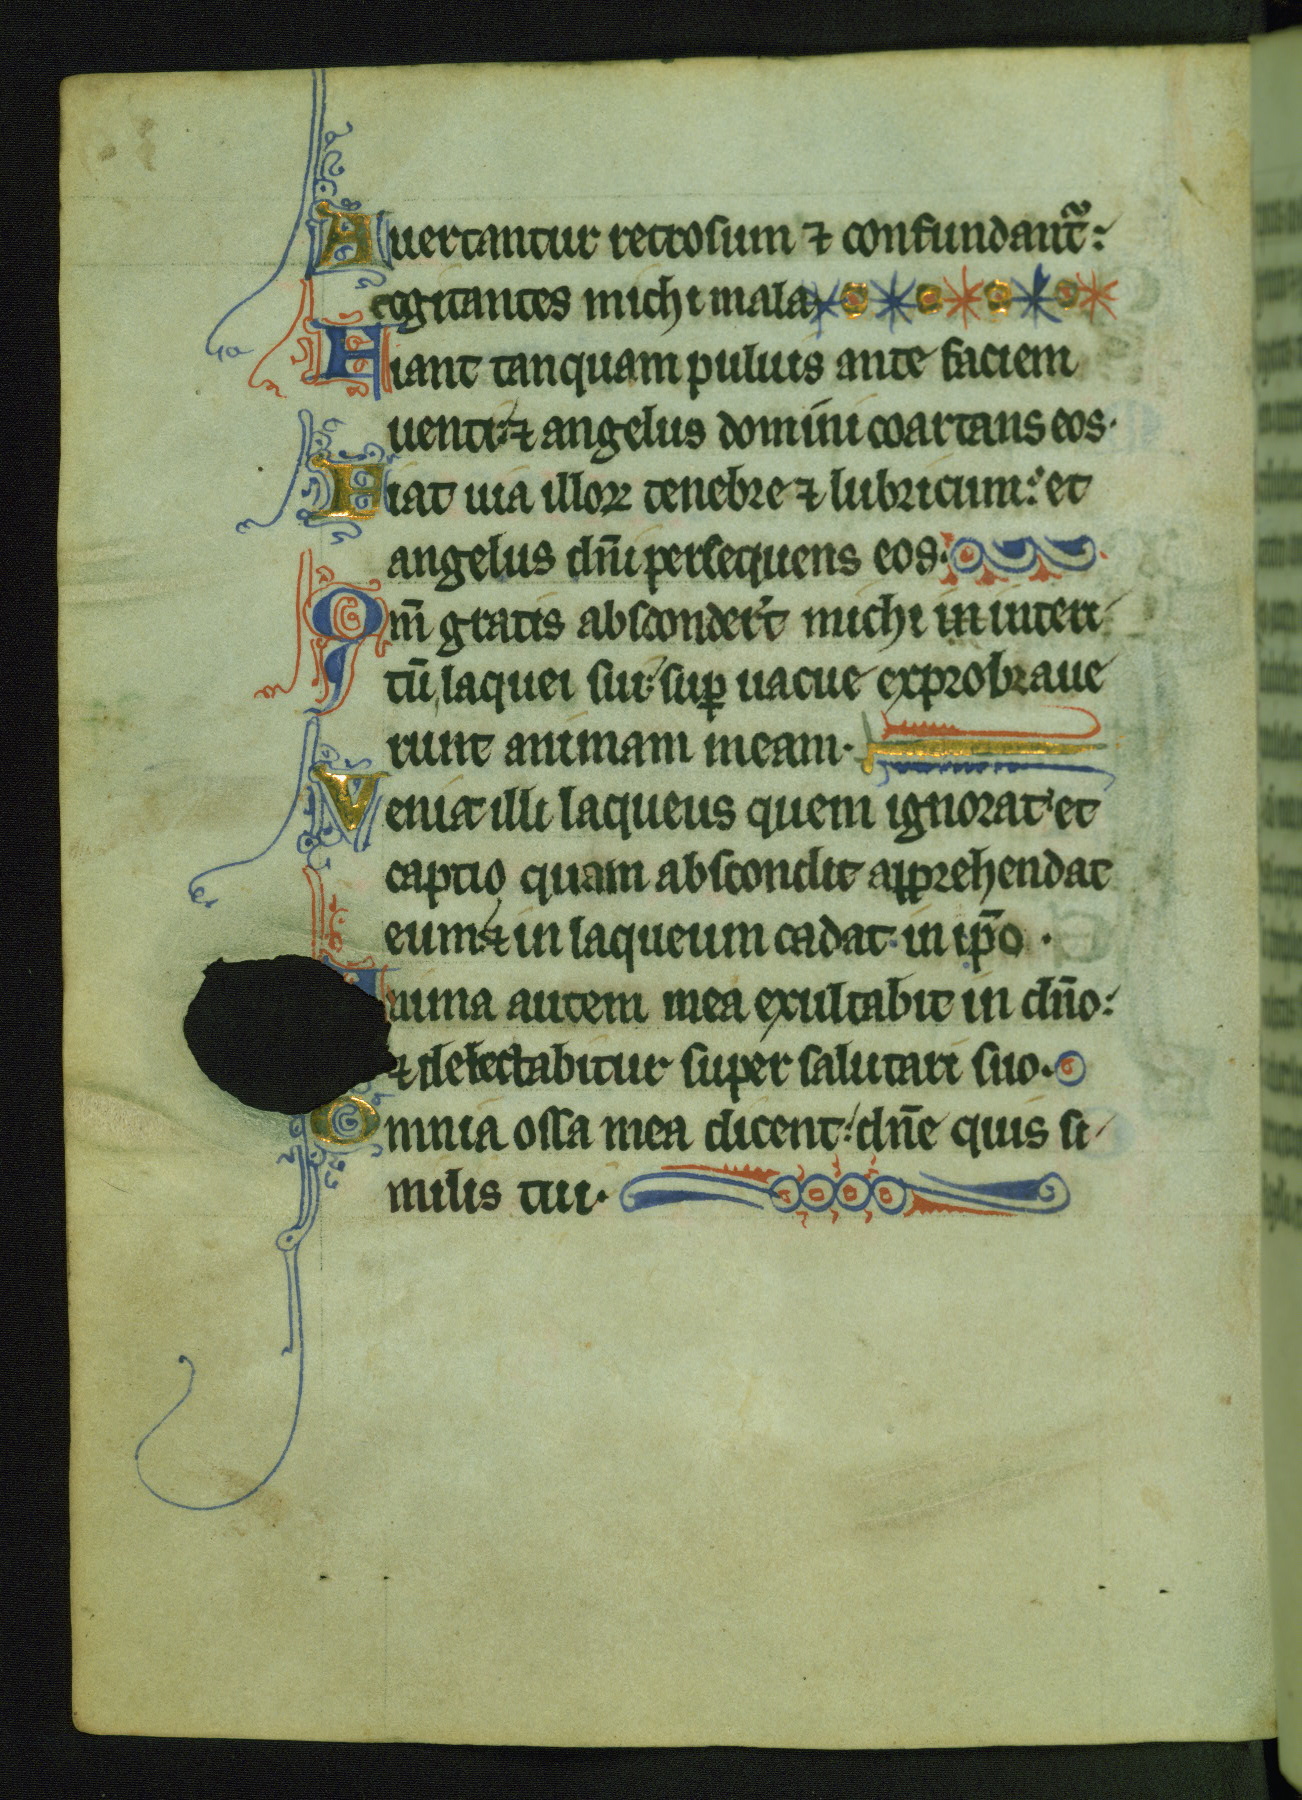 Auertantur retrosum ⁊ confundant᷑:
cogitantes michi mala
Fiant tanquam puluis ante faciem
uenti: ⁊ angelus domini coartans eos.
Fiat uia illoꝝ tenebre ⁊ lubricum: et
angelus dñi persequens eos.
Qm̄ gratis absconder̄t michi in interi
tū laquei sui: suꝑ uacue exprobraue
runt animam meam.
Veniat illi laqueus quem ignorat et
captio quam abscondit apprehendat
eum: ⁊ in laqueum cadat in ip̄o .
nima autem mea exultabit in dño:
⁊ delectabitur super salutari suo.
Omnia ossa mea dicent: dñe quis si
milis tui.